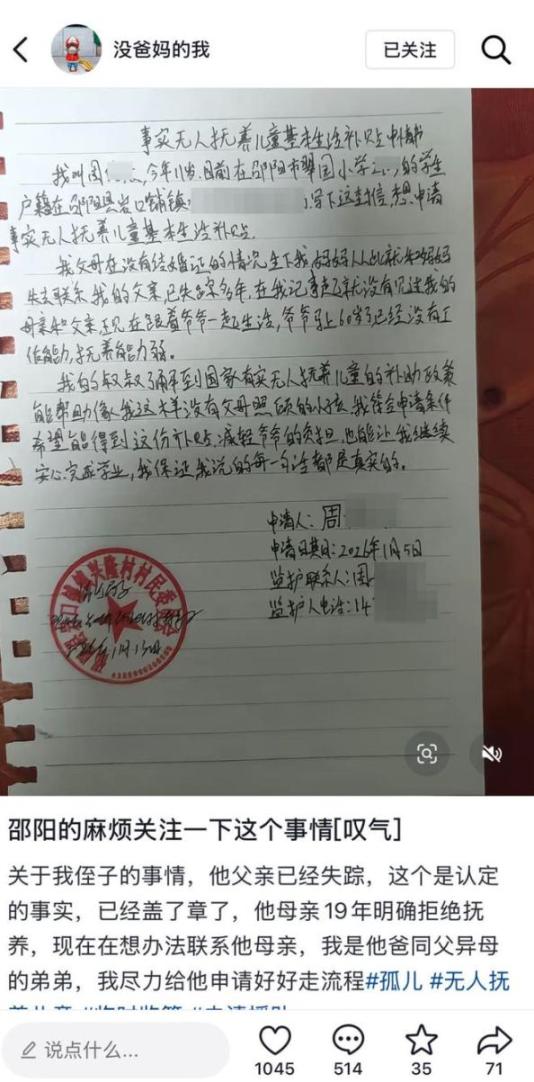 没爸妈的我
已关注
事实无人抚养儿童基本生活补贴申请书
我叫周 , 今年11岁, 目前在邵阳市翠园小学 的学生
户籍在邵阳县岩口铺镇 写下这封信, 想申请
事实无人抚养儿童基本生活补贴.
我父母在没有结婚证的情况生下我, 妈妈从此就
失去联系, 我的父亲, 已失踪多年, 在我记事起就没有见过我的
母亲和父亲, 现在跟着爷爷一起生活, 爷爷马上60岁了已经没有工
作能力, 抚养能力弱。
我的叔叔了解到国家有实无人抚养儿童的补助政策
能帮助像我这样没有父母照顾的小孩, 我符合申请条件
希望能得到这份补贴, 减轻爷爷的负担, 也能让我继续
安心完成学业, 我保证我说的每一句话都是真实的。
申请人: 周
申请日期: 2026年1月5日
监护联系人: 周
监护人电话: 14
村村民委员会
1月13日
邵阳的麻烦关注一下这个事情[叹气]
关于我侄子的事情，他父亲已经失踪，这个是认定
的事实，已经盖了章了，他母亲19年明确拒绝抚
养，现在在想办法联系他母亲，我是他爸同父异母
的弟弟，我尽力给他申请好好走流程#孤儿 #无人抚
说点什么...
1045
514
35
71